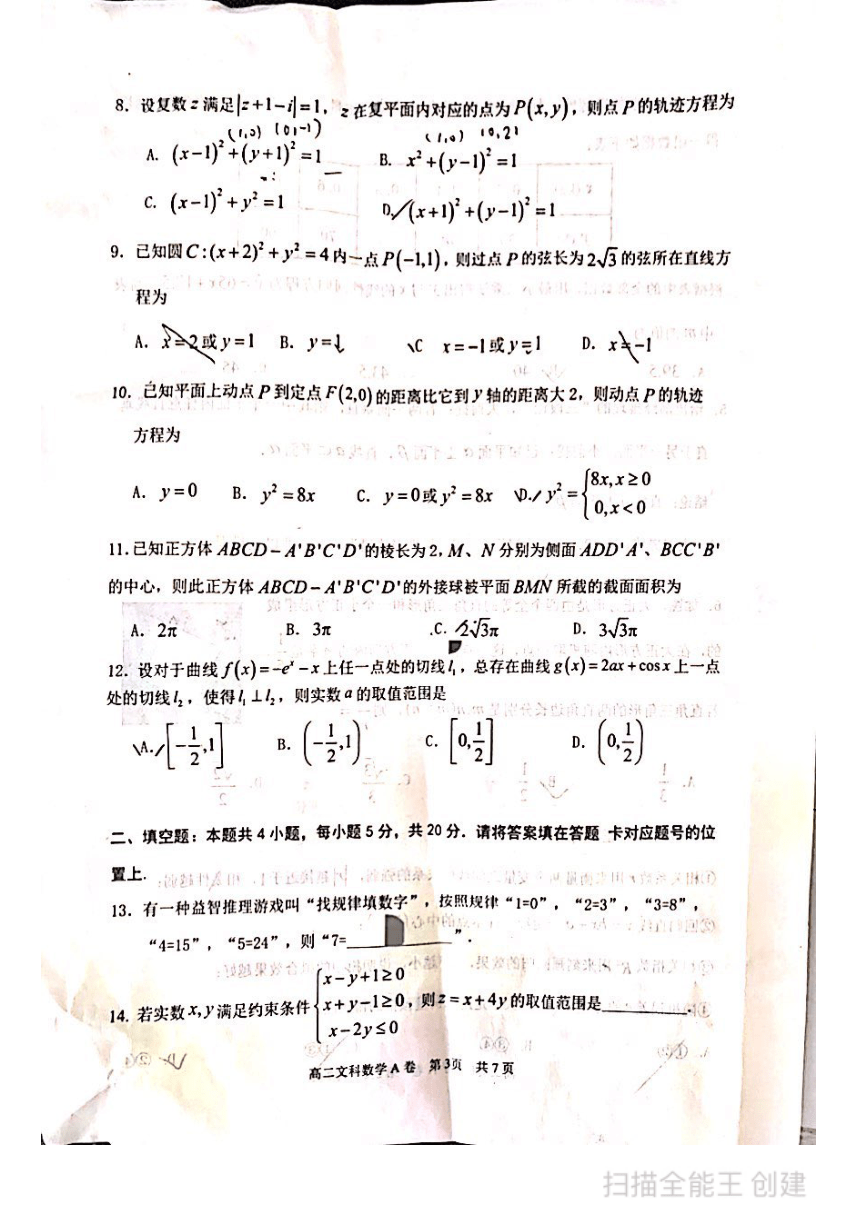 8. 设复数 z 满足|z+1-i|=1，z 在复平面内对应的点为 P(x,y)，则点 P 的轨迹方程为
(1,0) (0,-1) (1,0) (0,2)
A. (x-1)²+(y+1)²=1 B. x²+(y-1)²=1
C. (x-1)²+y²=1 D. (x+1)²+(y-1)²=1
9. 已知圆 C:(x+2)²+y²=4 内一点 P(-1,1)，则过点 P 的弦长为 2√3 的弦所在直线方
程为
A. x=2或 y=1 B. y=1 C x=-1或 y=1 D. x=-1
10. 已知平面上动点 P 到定点 F(2,0) 的距离比它到 y 轴的距离大 2，则动点 P 的轨迹
方程为
A. y=0 B. y²=8x C. y=0或 y²=8x D. y²={8x,x≥0
0,x<0
11. 已知正方体 ABCD-A'B'C'D' 的棱长为 2，M、N 分别为侧面 ADD'A'、BCC'B'
的中心，则此正方体 ABCD-A'B'C'D' 的外接球被平面 BMN 所截的截面面积为
A. 2π B. 3π C. 2√3π D. 3√3π
12. 设对于曲线 f(x)=-eˣ-x 上任一点处的切线 l₁，总存在曲线 g(x)=2ax+cosx 上一点
处的切线 l₂，使得 l₁⊥l₂，则实数 a 的取值范围是
A. [-1/2,1] B. (-1/2,1) C. [0,1/2] D. (0,1/2)
二、填空题：本题共 4 小题，每小题 5 分，共 20 分．请将答案填在答题 卡对应题号的位
置上．
13. 有一种益智推理游戏叫“找规律填数字”，按照规律“1=0”，“2=3”，“3=8”，
“4=15”，“5=24”，则“7=________”．
14. 若实数 x,y 满足约束条件 {x-y+1≥0
x+y-1≥0，则 z=x+4y 的取值范围是________．
x-2y≤0
高二文科数学 A 卷 第3页 共7页
扫描全能王 创建